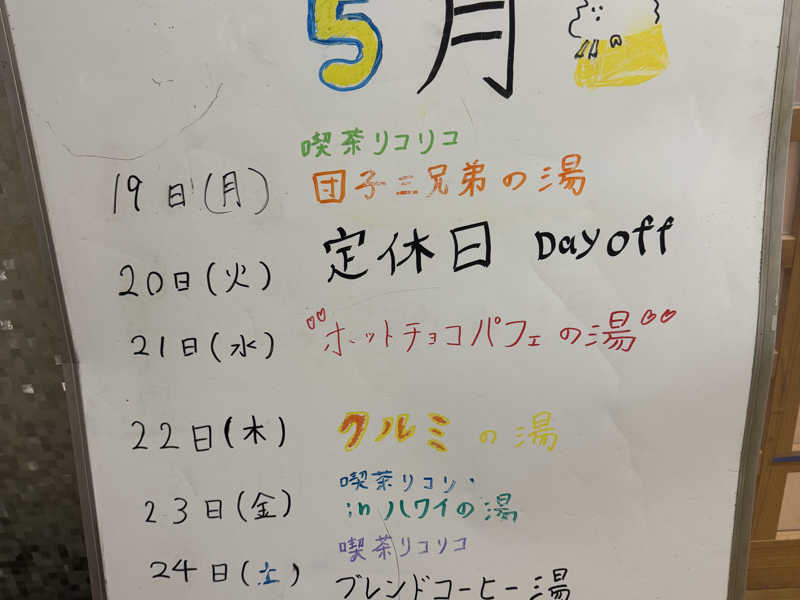 5月
喫茶リコリコ
19日(月) 団子三兄弟の湯
20日(火) 定休日 Day off
21日(水) ホットチョコパフェの湯
22日(木) クルミの湯
喫茶リコリ・
23日(金) inハワイの湯
喫茶リコリコ
24日(土) ブレンドコーヒー湯